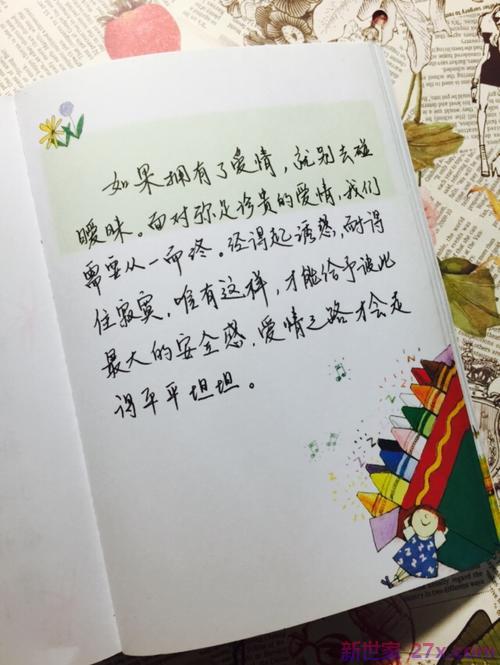 如果拥有了爱情，就别去碰
暧昧。面对弥足珍贵的爱情，我们
需要从一而终。经得起诱惑，耐得
住寂寞，唯有这样，才能给予彼此
最大的安全感，爱情之路才会走
得平平坦坦。
新世家-27x.com